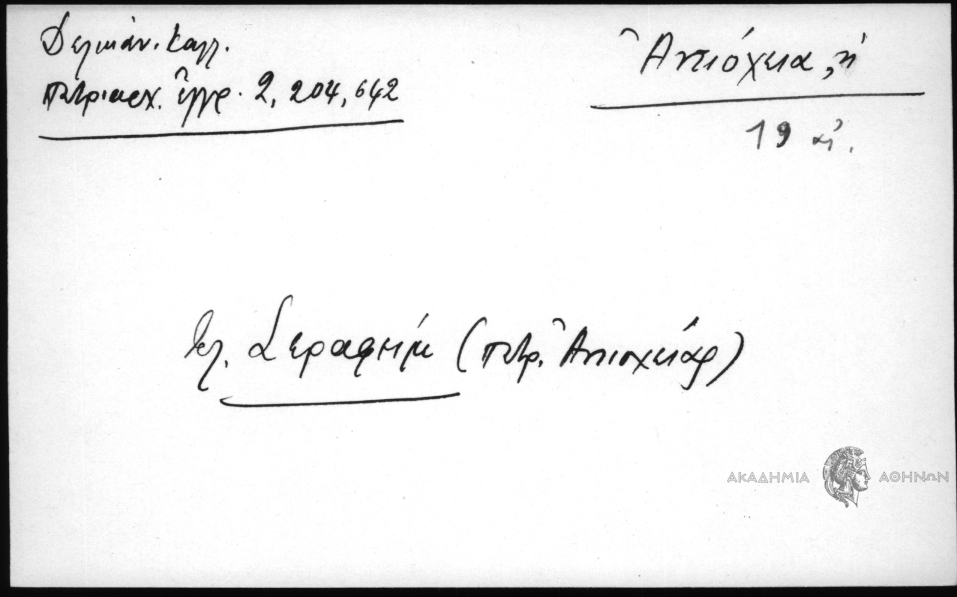 Δελικάν. Καλλ.
Πατριαρχ. ἔγγρ. 2, 204, 642
Ἀντιόχεια, ἡ
19 αἰ.
βλ. Σεραφείμ (πατρ. Ἀντιοχείας)
ΑΚΑΔΗΜΙΑ ΑΘΗΝΩΝ